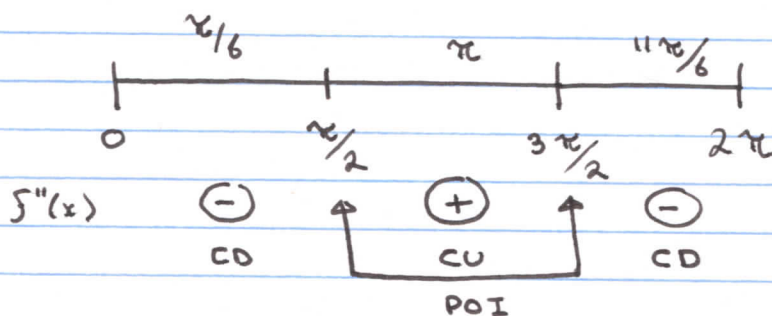 π/6 π 11π/6
0 π/2 3π/2 2π
f"(x) - + -
CD CU CD
POI